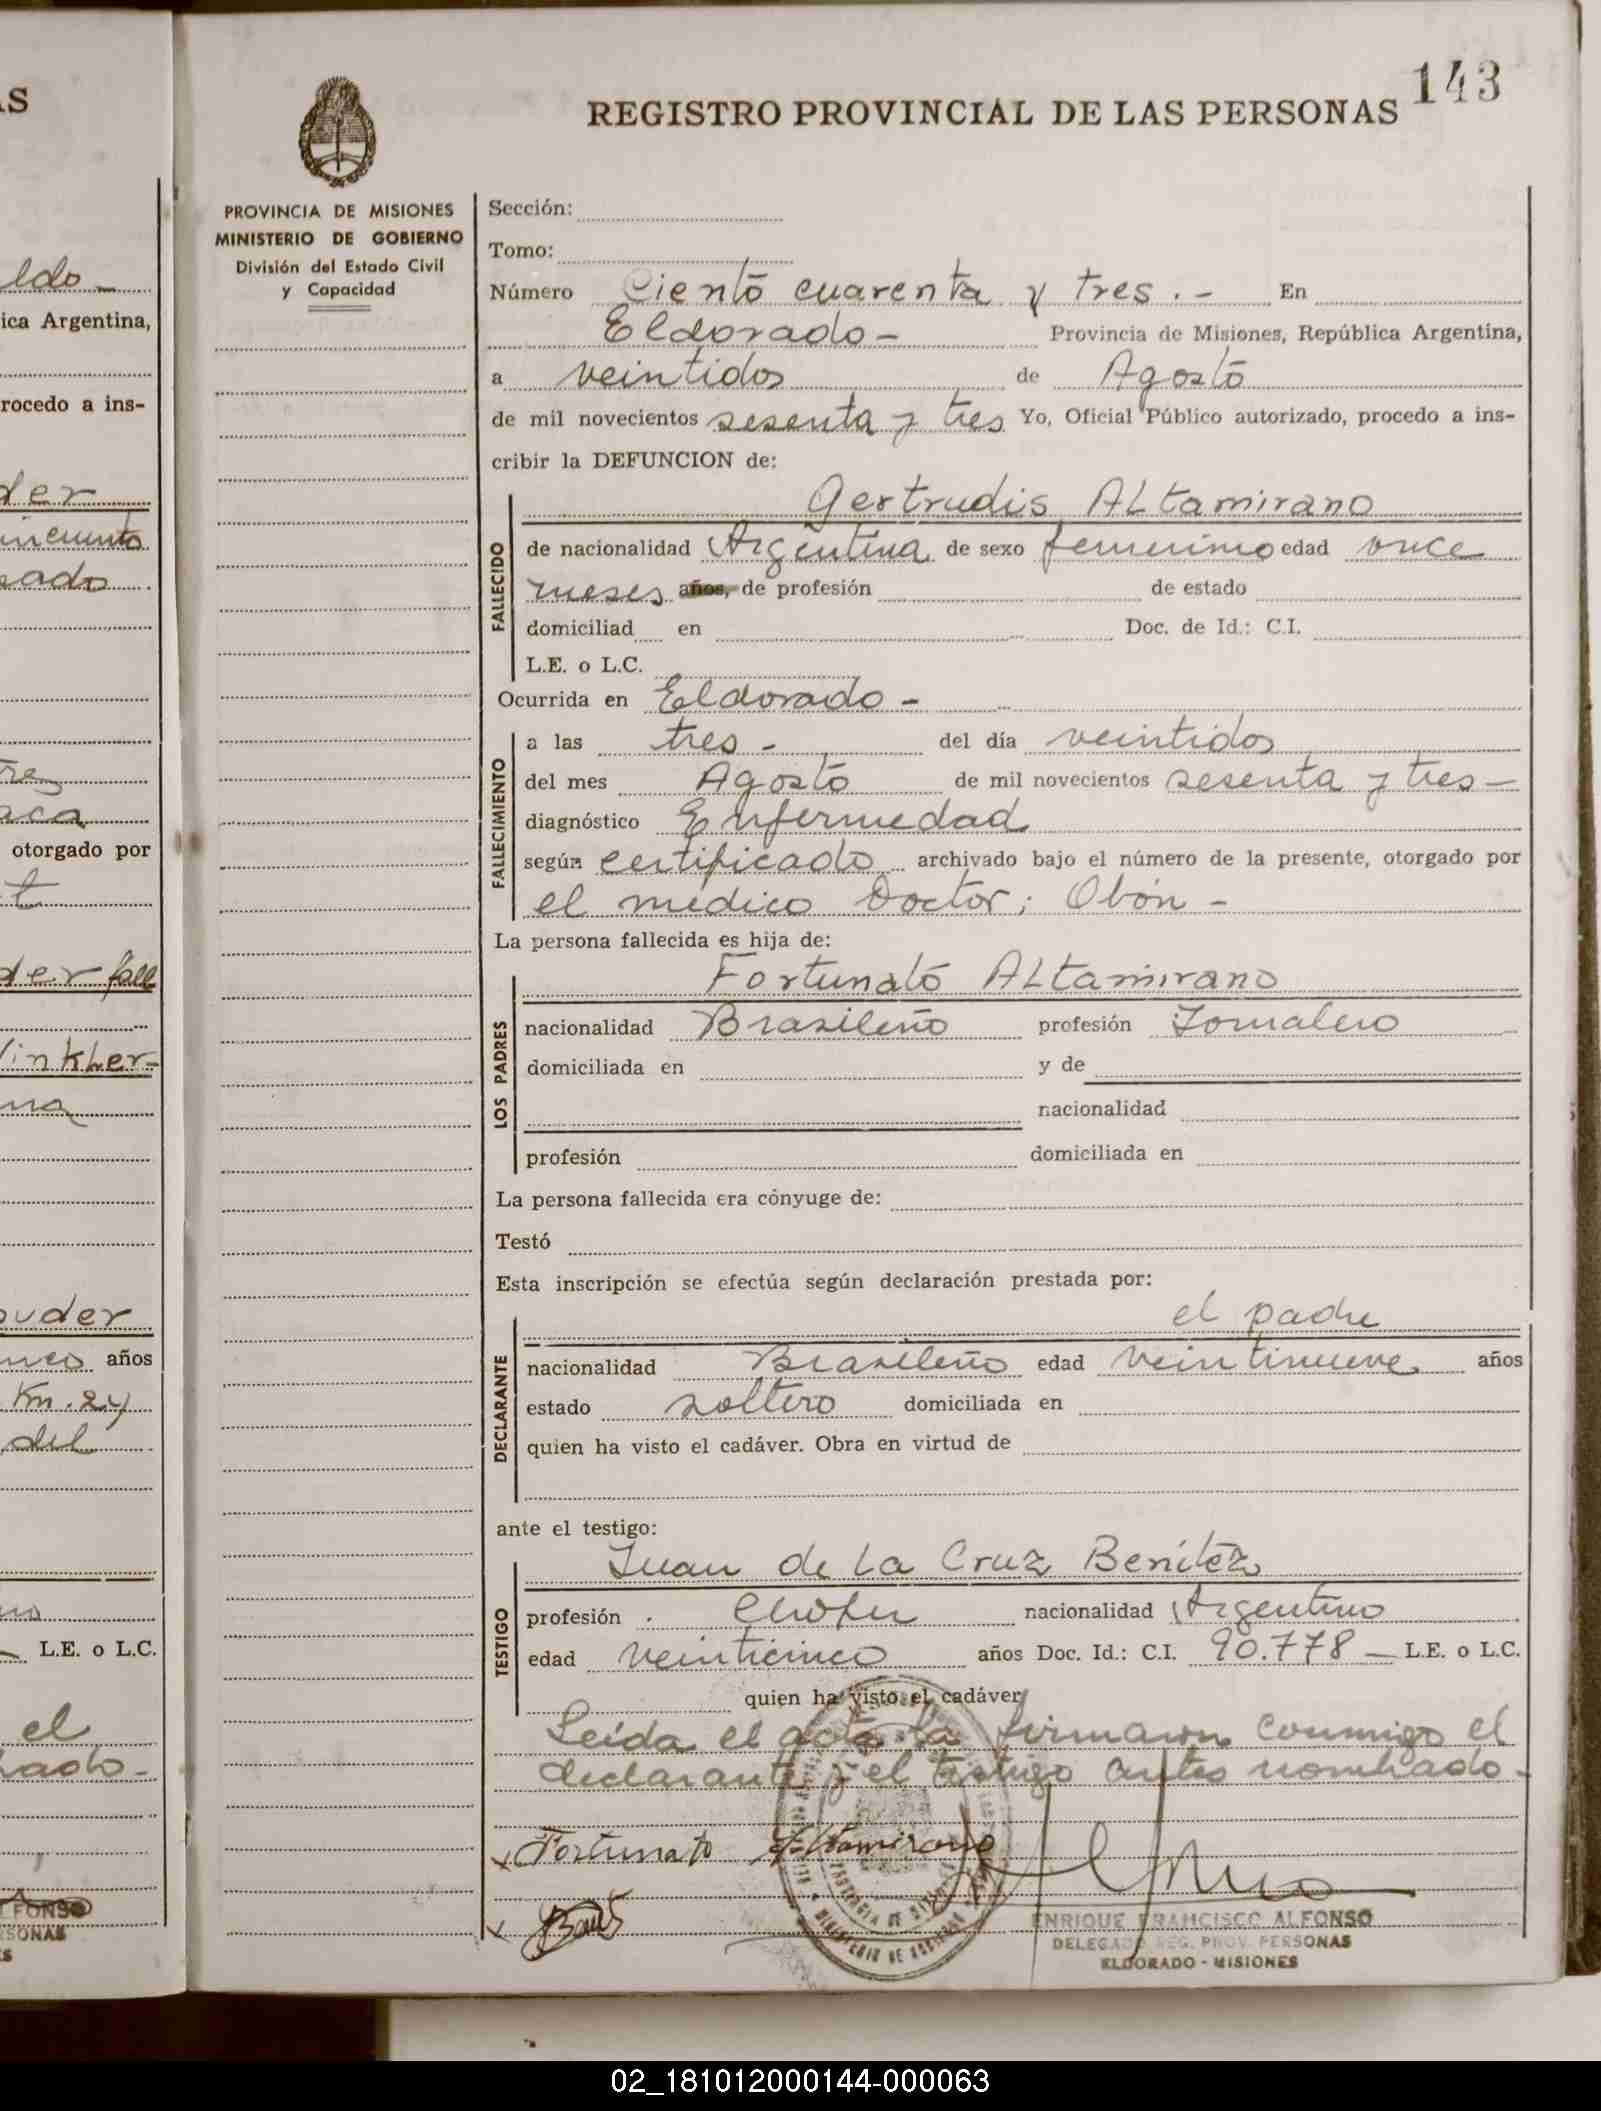 AS
ldo -
ica Argentina,
rocedo a ins-
der
ado
aca
otorgado por
t
der fall
inkler-
na
ouder
años
Km. 24
del
L.E. o L.C.
el
hado -
FONSO
RSONAS
S
143
REGISTRO PROVINCIAL DE LAS PERSONAS
PROVINCIA DE MISIONES
MINISTERIO DE GOBIERNO
División del Estado Civil
y Capacidad
Sección:
Tomo:
Número Ciento cuarenta y tres . - En
Eldorado - Provincia de Misiones, República Argentina,
a veintidos de Agosto
de mil novecientos sesenta y tres Yo, Oficial Público autorizado, procedo a ins-
cribir la DEFUNCION de:
FALLECIDO
Gertrudis ALtamirano
de nacionalidad Argentina de sexo femenino edad once
meses años, de profesión de estado
domiciliad en Doc. de Id.: C.I.
L.E. o L.C.
Ocurrida en Eldorado -
FALLECIMIENTO
a las tres - del día veintidos
del mes Agosto de mil novecientos sesenta y tres -
diagnóstico Enfermedad
según certificado archivado bajo el número de la presente, otorgado por
el medico Doctor; Obón -
La persona fallecida es hija de:
LOS PADRES
Fortunato ALtamirano
nacionalidad Brasileño profesión Jornalero
domiciliada en y de
nacionalidad
profesión domiciliada en
La persona fallecida era cónyuge de:
Testó
Esta inscripción se efectúa según declaración prestada por:
DECLARANTE
el padre
nacionalidad Brasileño edad veintinueve años
estado soltero domiciliada en
quien ha visto el cadáver. Obra en virtud de
ante el testigo:
TESTIGO
Juan de La Cruz Benítez
profesión Chofer nacionalidad Argentino
edad veinticinco años Doc. Id.: C.I. 90.778 - L.E. o L.C.
quien ha visto el cadáver
Leída el acta la firmaron conmigo el
declarante y el testigo antes nombrado -
x Fortunato Altamirano
x
ENRIQUE FRANCISCO ALFONSO
DELEGADO REG. PROV. PERSONAS
ELDORADO - MISIONES
02_181012000144-000063